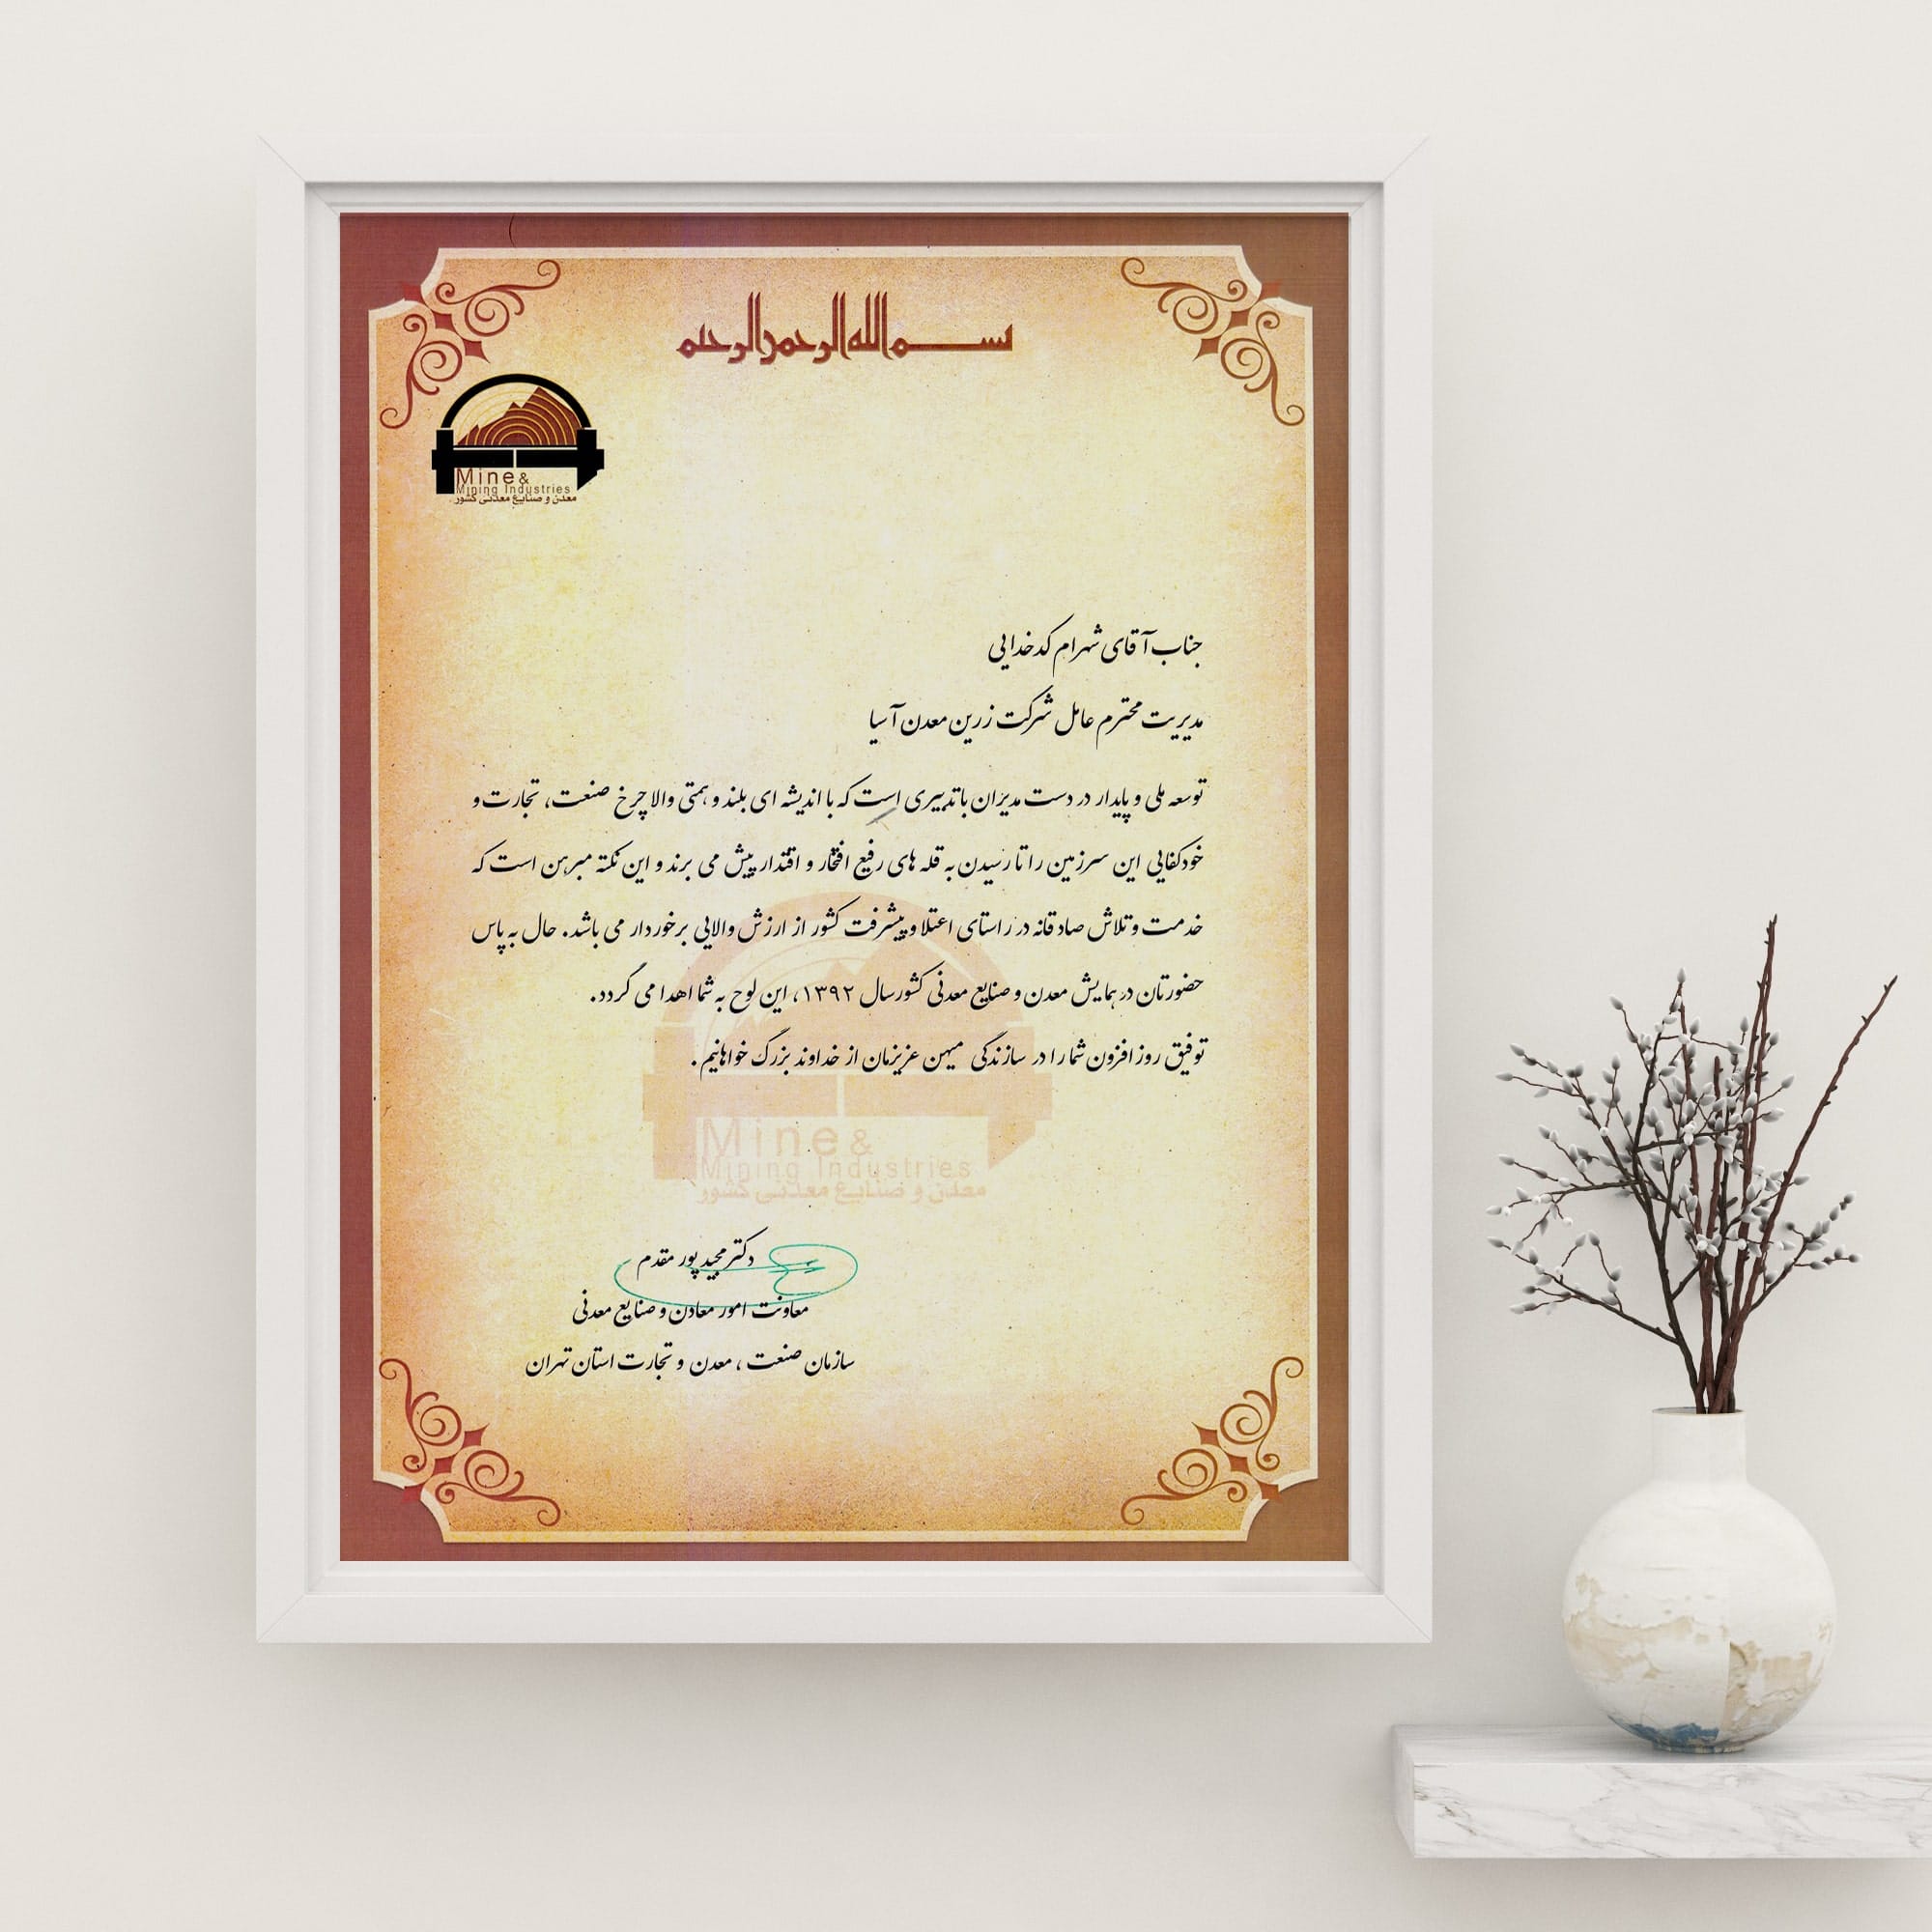 بسم الله الرحمن الرحیم
Mine &
Mining Industries
معدن و صنایع معدنی کشور
جناب آقای شهرام کدخدایی
مدیریت محترم عامل شرکت زرین معدن آسیا
توسعه ملی و پایدار در دست مدیران با تدبیری است که با اندیشه ای بلند و همتی والا چرخ صنعت، تجارت و
خودکفایی این سرزمین را تا رسیدن به قله های رفیع افتخار و اقتدار پیش می برند و این نکته مبرهن است که
خدمت و تلاش صادقانه در راستای اعتلا و پیشرفت کشور از ارزش والایی برخوردار می باشد. حال به پاس
حضورتان در همایش معدن و صنایع معدنی کشور سال ۱۳۹۲، این لوح به شما اهدا می گردد.
توفیق روز افزون شما را در سازندگی میهن عزیزمان از خداوند بزرگ خواهانیم.
Mine &
Mining Industries
معدن و صنایع معدنی کشور
دکتر مجید پور مقدم
معاونت امور معادن و صنایع معدنی
سازمان صنعت، معدن و تجارت استان تهران